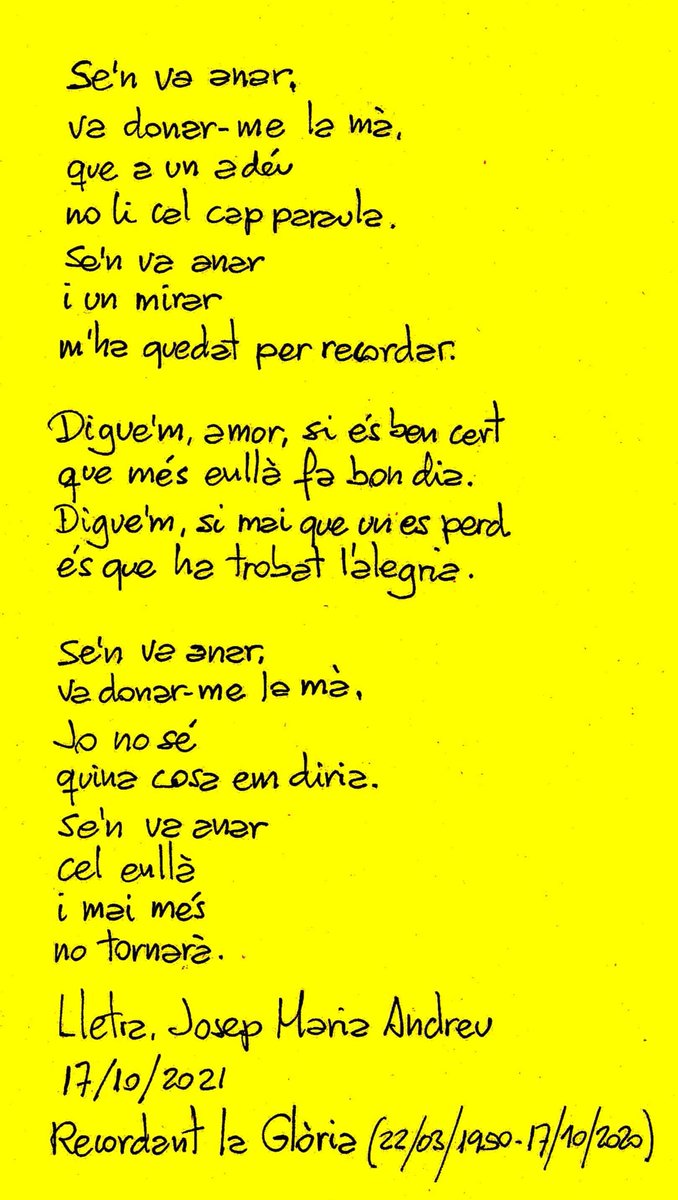 Se'n va anar,
va donar-me la mà,
que a un adéu
no li cal cap paraula.
Se'n va anar
i un mirar
m'ha quedat per recordar.
Digue'm, amor, si és ben cert
que més enllà fa bon dia.
Digue'm, si mai que un es perd
és que ha trobat l'alegria.
Se'n va anar,
va donar-me la mà,
Jo no sé
quina cosa em diria.
Se'n va anar
cel enllà
i mai més
no tornarà.
Lletra, Josep Maria Andreu
17/10/2021
Recordant la Glòria (22/03/1950-17/10/2020)